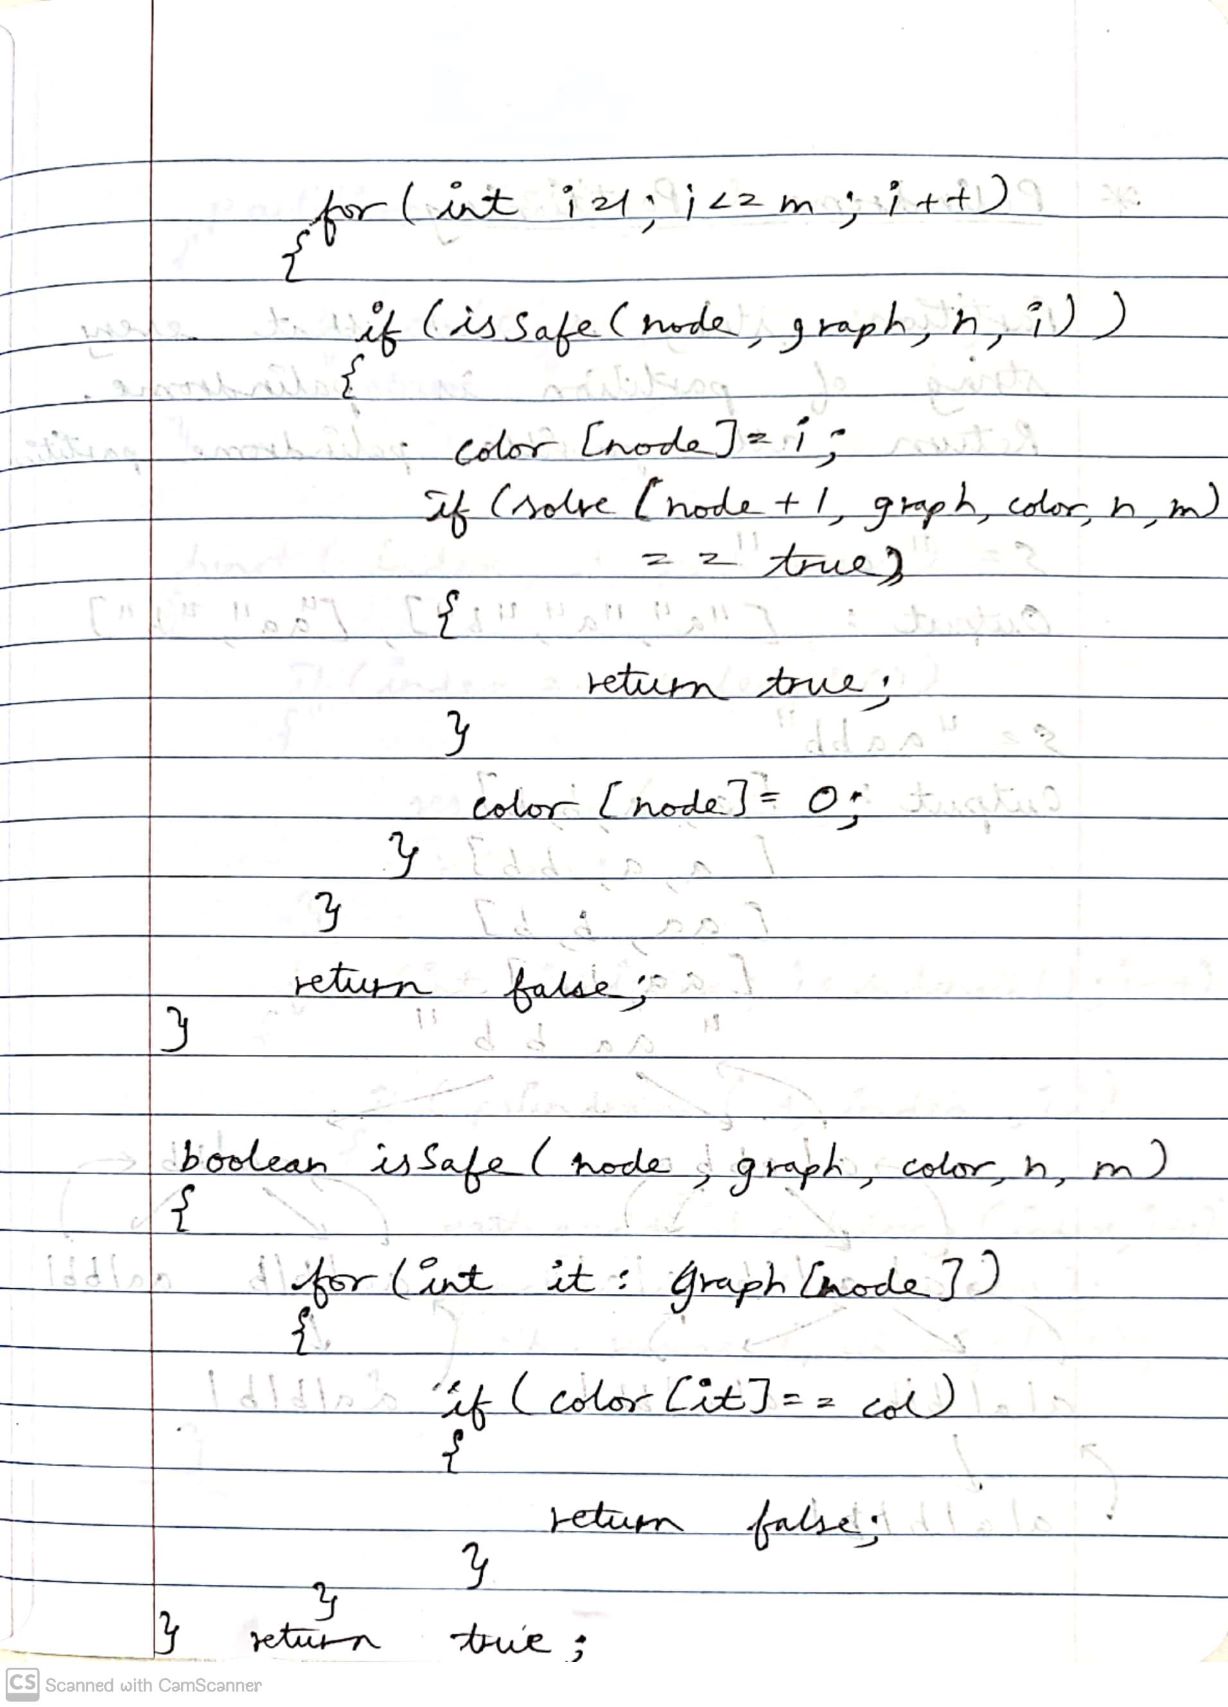 for (int i=1; i<=m; i++)
{
if (isSafe(node, graph, n, i))
{
color [node]=i;
if (solve (node+1, graph, color, n, m)
== true)
{
return true;
}
color [node]= 0;
}
}
return false;
}
boolean isSafe (node, graph, color, n, m)
{
for (int it : graph[node])
{
if (color[it]== col)
{
return false;
}
}
} return true;
CS Scanned with CamScanner